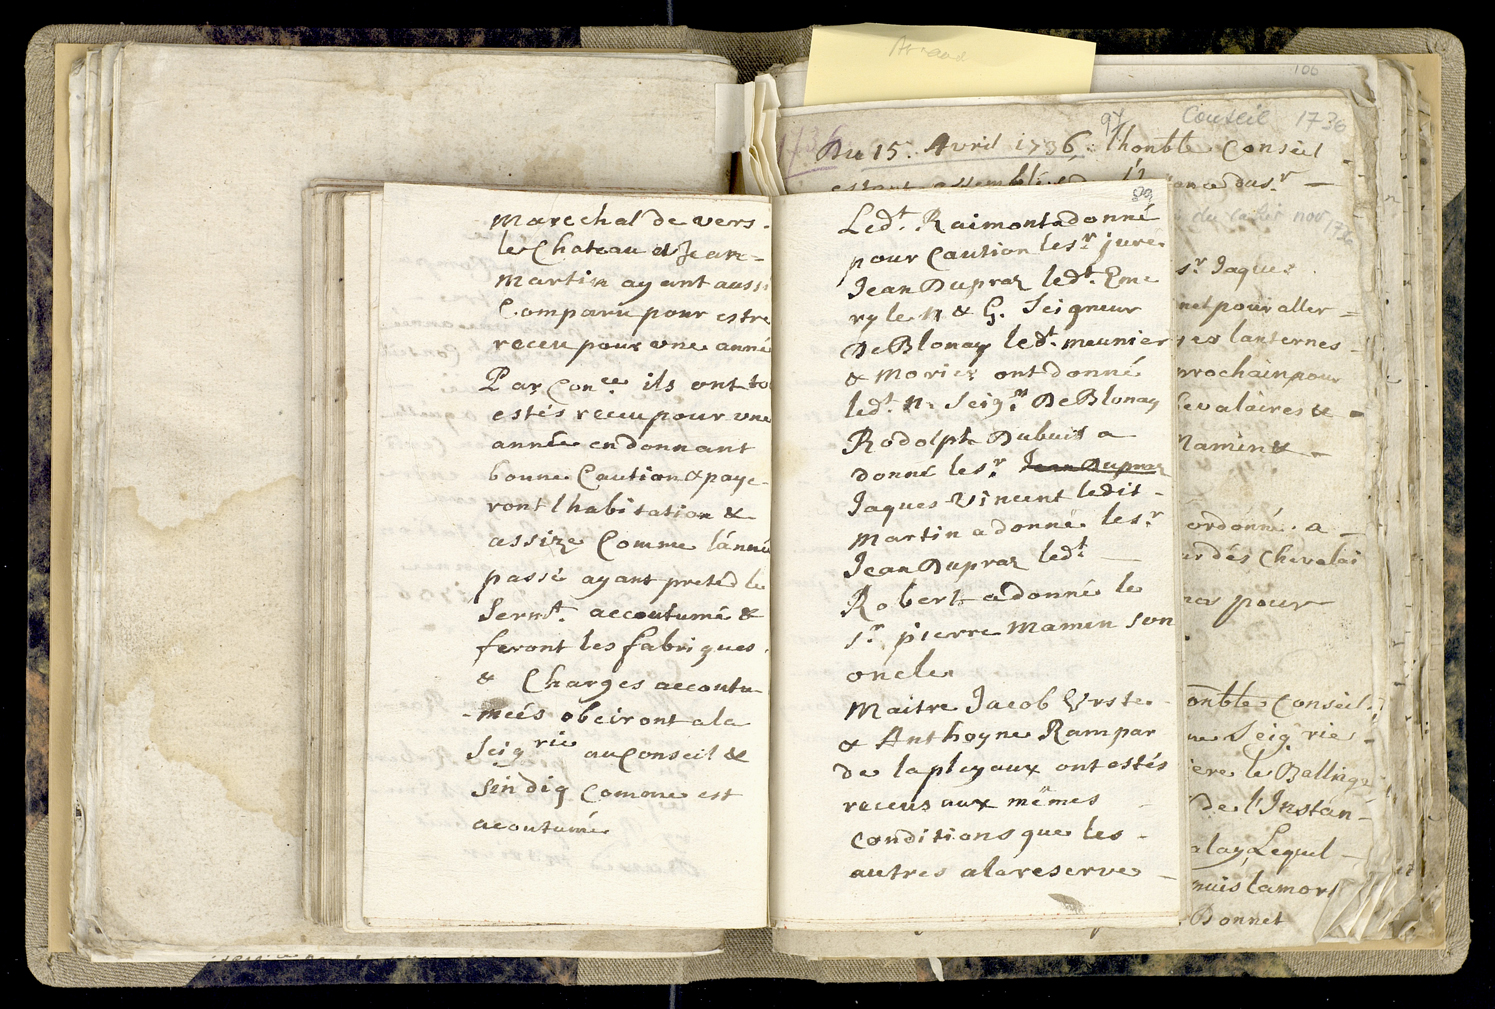 Marechal de vers
le Chateau et Jean
Martin ayant aussi
Comparu pour estre
receu pour une année
Par Con.ce ils ont
estés receu pour une
année en donnant
bonne Caution & paye-
ront lhabitation &
assize Comme lánné
passé ayant preté le
Serm.t accoutumé &
feront les fabriques
& Charges accoutu-
-meés obeiront a la
Seig.rie au Conseil &
Sindiq Comme est
acoutumé
89
Led.t Raimont a donné
pour Caution le s.r juré
Jean Dupraz led.t Eme
ry le N & G. Seigneur
De Blonay led.t meunier
& Morier ont donné
led.t N. Seig.r De Blonay
Rodolph Dubuit a
donné le s.r Jean Dupraz
Jaques Vincent ledit -
Martin a donné le s.r
Jean Dupraz led.t
Robert a donné le
s.r pierre Mamin son
oncle
Maitre Jacob Erste
& Anthoyne Rampar
de la pleyaux ont estés
receus aux mêmes
conditions que les -
autres a la reserve
Arraud
106
97
Conseil 1736
1736
Du 15. Avril 1736. lhonble Conseil
estant assemblé
du Cahier nov 1736
s.r Jaques
net pour aller
les lanternes
prochain pour
Chevalaires &
Mamin &
ordonné a
des Chevalai
pour
honble Conseil
Seig.rie
le Ballinge
de l'Instan-
Lequel
la mort
Bonnet